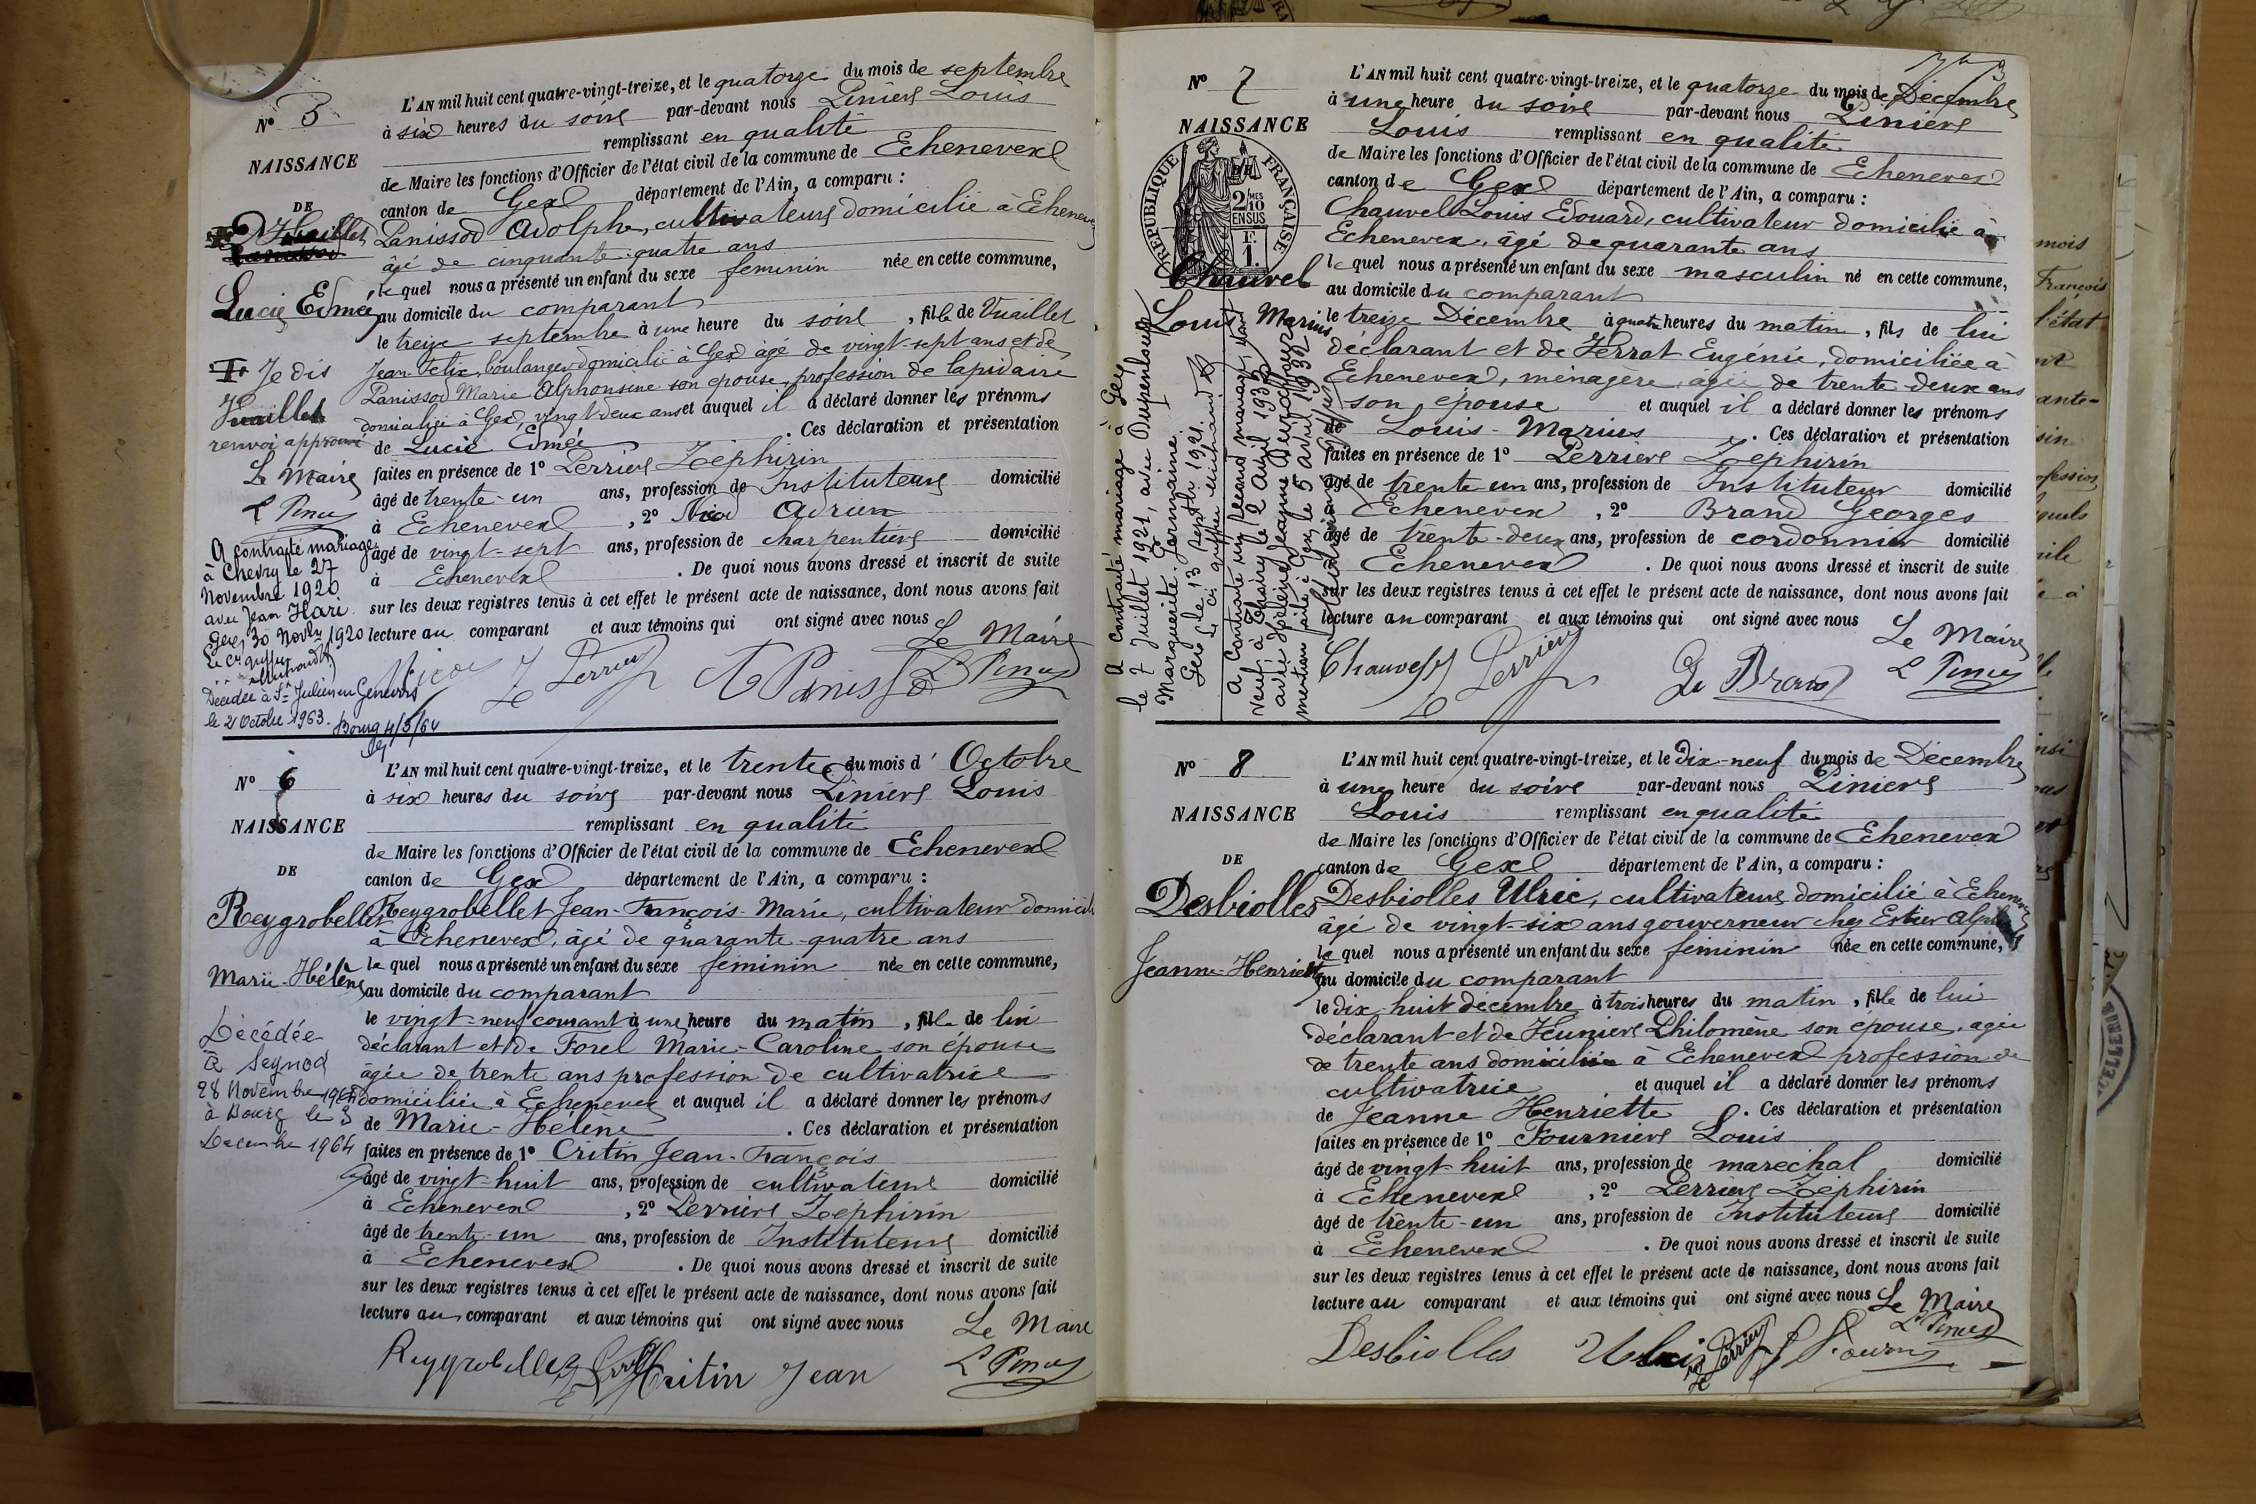 N° 5
NAISSANCE
DE
Vuaillet
Lucie Edmée
Je dis
Vuaillet
renvoi approuvé
Le Maire
L Pinier
A contracté mariage
à Chevry le 27
Novembre 1920
avec Jean Hari
Gex, 30 Novbre 1920
Décédée à St Julien en Genevois
le 21 Octobre 1963
Bourg 4/3/64
L'AN mil huit cent quatre-vingt-treize, et le quatorze du mois de septembre
à six heures du soir par-devant nous Pinier Louis
remplissant en qualité
de Maire les fonctions d'Officier de l'état civil de la commune de Echenevex
canton de Gex département de l'Ain, a comparu :
Panissod Adolphe, cultivateur domicilié à Echenevex
âgé de cinquante-quatre ans
le quel nous a présenté un enfant du sexe féminin née en cette commune,
au domicile du comparant
le treize septembre à une heure du soir, fille de Vuaillet
Jean Félix, boulanger domicilié à Gex âgé de vingt-sept ans et de
Panissod Marie Alphonsine son épouse, profession de lapidaire
domiciliée à Gex, vingt deux ans et auquel il a déclaré donner les prénoms
de Lucie Edmée. Ces déclaration et présentation
faites en présence de 1° Perrier Zéphirin
âgé de trente-un ans, profession de Instituteur domicilié
à Echenevex, 2° Nicod Adrien
âgé de vingt-sept ans, profession de charpentier domicilié
à Echenevex. De quoi nous avons dressé et inscrit de suite
sur les deux registres tenus à cet effet le présent acte de naissance, dont nous avons fait
lecture au comparant et aux témoins qui ont signé avec nous
Le Maire
Nicod Z Perrier A Panissod L Pinier
N° 6
NAISSANCE
DE
Reygrobellet
Marie-Hélène
Décédée
à Seynod
28 Novembre 1964
à Bourg le 3
Décembre 1964
L'AN mil huit cent quatre-vingt-treize, et le trente du mois d'Octobre
à six heures du soir par-devant nous Pinier Louis
remplissant en qualité
de Maire les fonctions d'Officier de l'état civil de la commune de Echenevex
canton de Gex département de l'Ain, a comparu :
Reygrobellet Jean-François-Marie, cultivateur domicilié
à Echenevex, âgé de quarante-quatre ans
le quel nous a présenté un enfant du sexe féminin née en cette commune,
au domicile du comparant
le vingt-neuf courant à une heure du matin, fille de lui
déclarant et de Forel Marie-Caroline son épouse
âgée de trente ans profession de cultivatrice
domiciliée à Echenevex et auquel il a déclaré donner les prénoms
de Marie-Hélène. Ces déclaration et présentation
faites en présence de 1° Critin Jean-François
âgé de vingt-huit ans, profession de cultivateur domicilié
à Echenevex, 2° Perrier Zéphirin
âgé de trente-un ans, profession de Instituteur domicilié
à Echenevex. De quoi nous avons dressé et inscrit de suite
sur les deux registres tenus à cet effet le présent acte de naissance, dont nous avons fait
lecture au comparant et aux témoins qui ont signé avec nous
Le Maire
Reygrobellet Critin Jean L Pinier
N° 7
NAISSANCE
DE
RÉPUBLIQUE FRANÇAISE
2/10 MES
EN SUS
F.
1.
Chauvel
Louis Marius
A contracté mariage à Gex
le 7 Juillet 1921, avec
Marguerite Germaine
Gex le 13 Septbre 1921.
A contracté un second mariage, étant
veuf, à Thoiry le 2 avril 1932
avec Hélène Jeanne
mention faite à Gex le 5 avril 1932
L'AN mil huit cent quatre-vingt-treize, et le quatorze du mois de Décembre
à une heure du soir par-devant nous Pinier
Louis remplissant en qualité
de Maire les fonctions d'Officier de l'état civil de la commune de Echenevex
canton de Gex département de l'Ain, a comparu :
Chauvel Louis Edouard, cultivateur domicilié à
Echenevex, âgé de quarante ans
le quel nous a présenté un enfant du sexe masculin né en cette commune,
au domicile du comparant
le treize Décembre à quatre heures du matin, fils de lui
déclarant et de Ferrat Eugénie, domiciliée à
Echenevex, ménagère, âgée de trente-deux ans
son épouse et auquel il a déclaré donner les prénoms
de Louis-Marius. Ces déclaration et présentation
faites en présence de 1° Perrier Zéphirin
âgé de trente-un ans, profession de Instituteur domicilié
Echenevex, 2° Brand Georges
âgé de trente-deux ans, profession de cordonnier domicilié
Echenevex. De quoi nous avons dressé et inscrit de suite
sur les deux registres tenus à cet effet le présent acte de naissance, dont nous avons fait
lecture au comparant et aux témoins qui ont signé avec nous
Le Maire
Chauvel Z Perrier Ge Brand L Pinier
N° 8
NAISSANCE
DE
Desbiolles
Jeanne-Henriette
L'AN mil huit cent quatre-vingt-treize, et le Dix-neuf du mois de Décembre
à une heure du soir par-devant nous Pinier
Louis remplissant en qualité
de Maire les fonctions d'Officier de l'état civil de la commune de Echenevex
canton de Gex département de l'Ain, a comparu :
Desbiolles Ulric, cultivateur domicilié à Echenevex
âgé de vingt-six ans gouverneur chez Estier
le quel nous a présenté un enfant du sexe féminin née en cette commune,
au domicile du comparant
le dix-huit décembre à trois heures du matin, fille de lui
déclarant et de Philomène son épouse, âgée
de trente ans domiciliée à Echenevex profession de
cultivatrice et auquel il a déclaré donner les prénoms
de Jeanne Henriette. Ces déclaration et présentation
faites en présence de 1° Fournier Louis
âgé de vingt-huit ans, profession de maréchal domicilié
à Echenevex, 2° Perrier Zéphirin
âgé de trente-un ans, profession de Instituteur domicilié
à Echenevex. De quoi nous avons dressé et inscrit de suite
sur les deux registres tenus à cet effet le présent acte de naissance, dont nous avons fait
lecture au comparant et aux témoins qui ont signé avec nous Le Maire
Desbiolles Ulric Z Perrier L Pinier